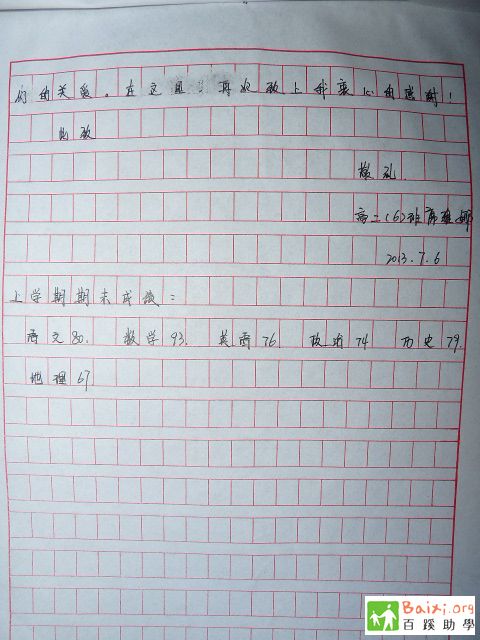 们的关爱。在这里，再次致上我衷心的感谢！
此致
敬礼
高二(6)班
2013.7.6
上学期期末成绩：
语文80. 数学93. 英语76. 政治74 历史79.
地理67
Baixi.org
百蹊助學